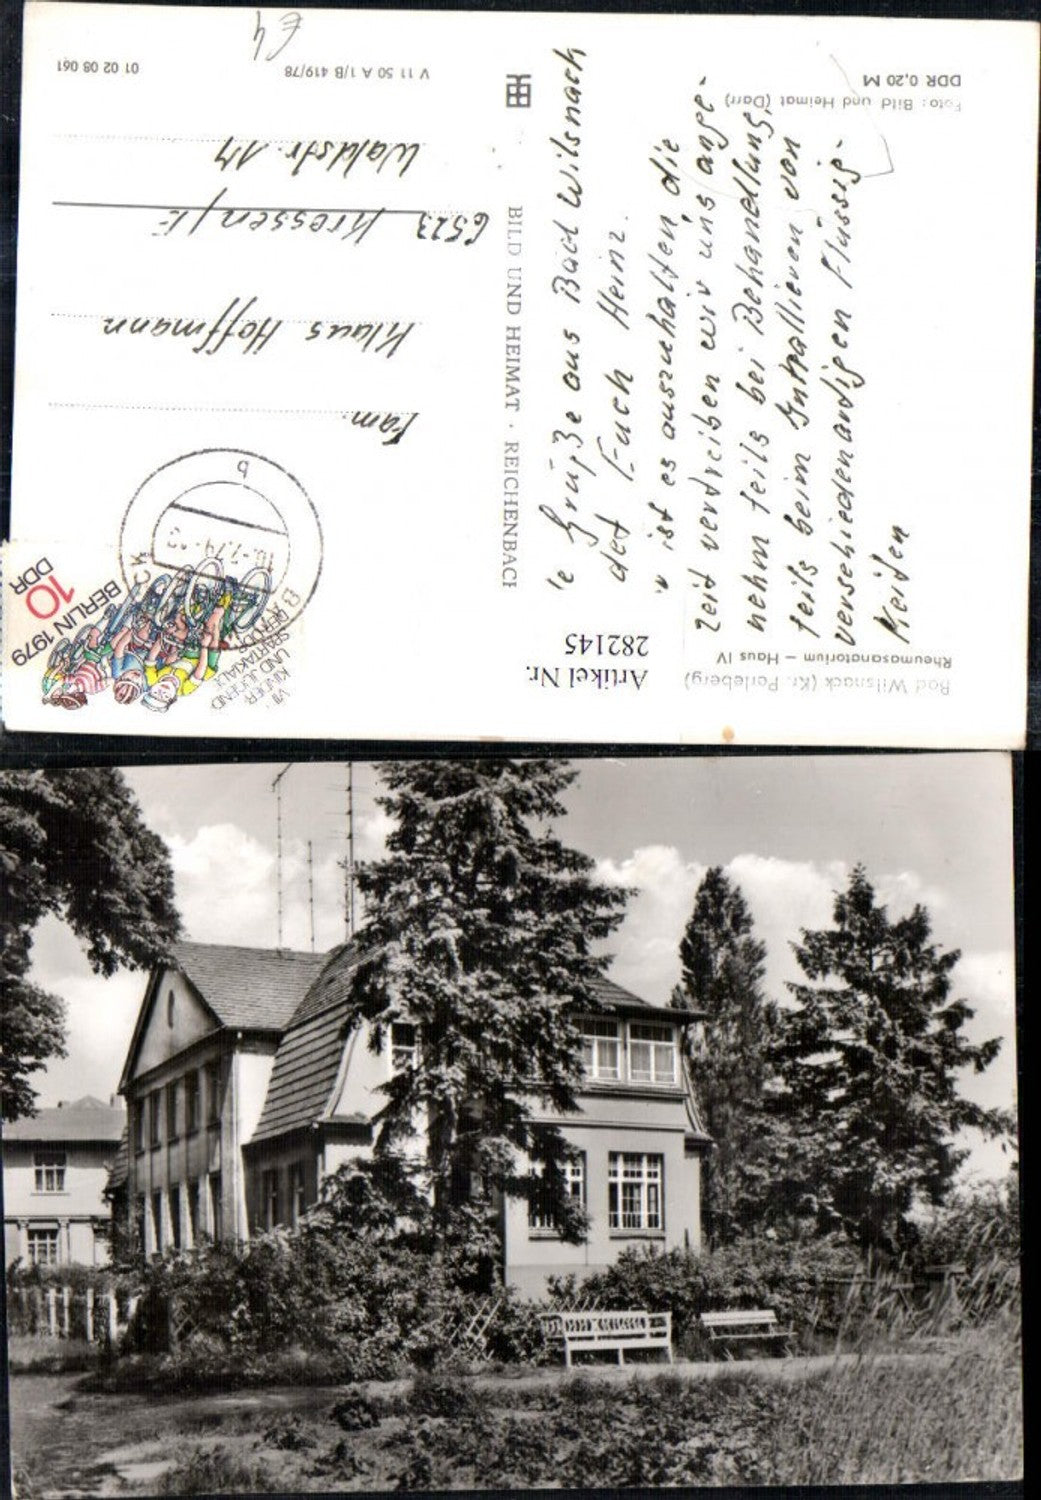 Bad Wilsnack (Kr. Perleberg)
Rheumasanatorium — Haus IV
Artikel Nr.
282145
Grüße aus Bad Wilsnack
Euch Heinz.
ist es auszuhalten die
Zeit vertreiben wir uns ange-
nehm teils bei Behandlung,
teils beim
von
verschiedenartigen Flüssig-
Keiten
Foto: Bild und Heimat (Darr)
DDR 0,20 M
BILD UND HEIMAT · REICHENBACH
VII.
KINDER-
UND JUGEND-
SPARTAKIADE
DER DDR
BERLIN 1979
10
DDR
b
Fam.
Klaus Hoffmann
6523 Krossen/E
Waldstr. 17
V 11 50 A 1/B 419/78
01 02 08 061
£4